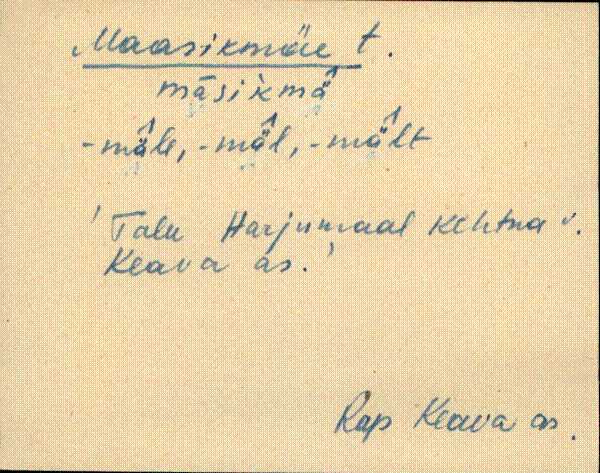 Maasikmäe t.
māsìkmä̂
-mä̂le, -mä̂l, -mä̂lt
'Talu Harjumaal Kehtna v.
Keava as.'
Rap Keava as.